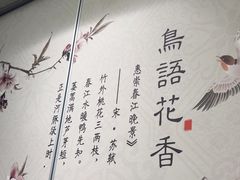 鳥語花香
惠崇春江晚景》
——宋·苏轼
竹外桃花三两枝，
春江水暖鸭先知。
蒌蒿满地芦芽短，
正是河豚欲上时。